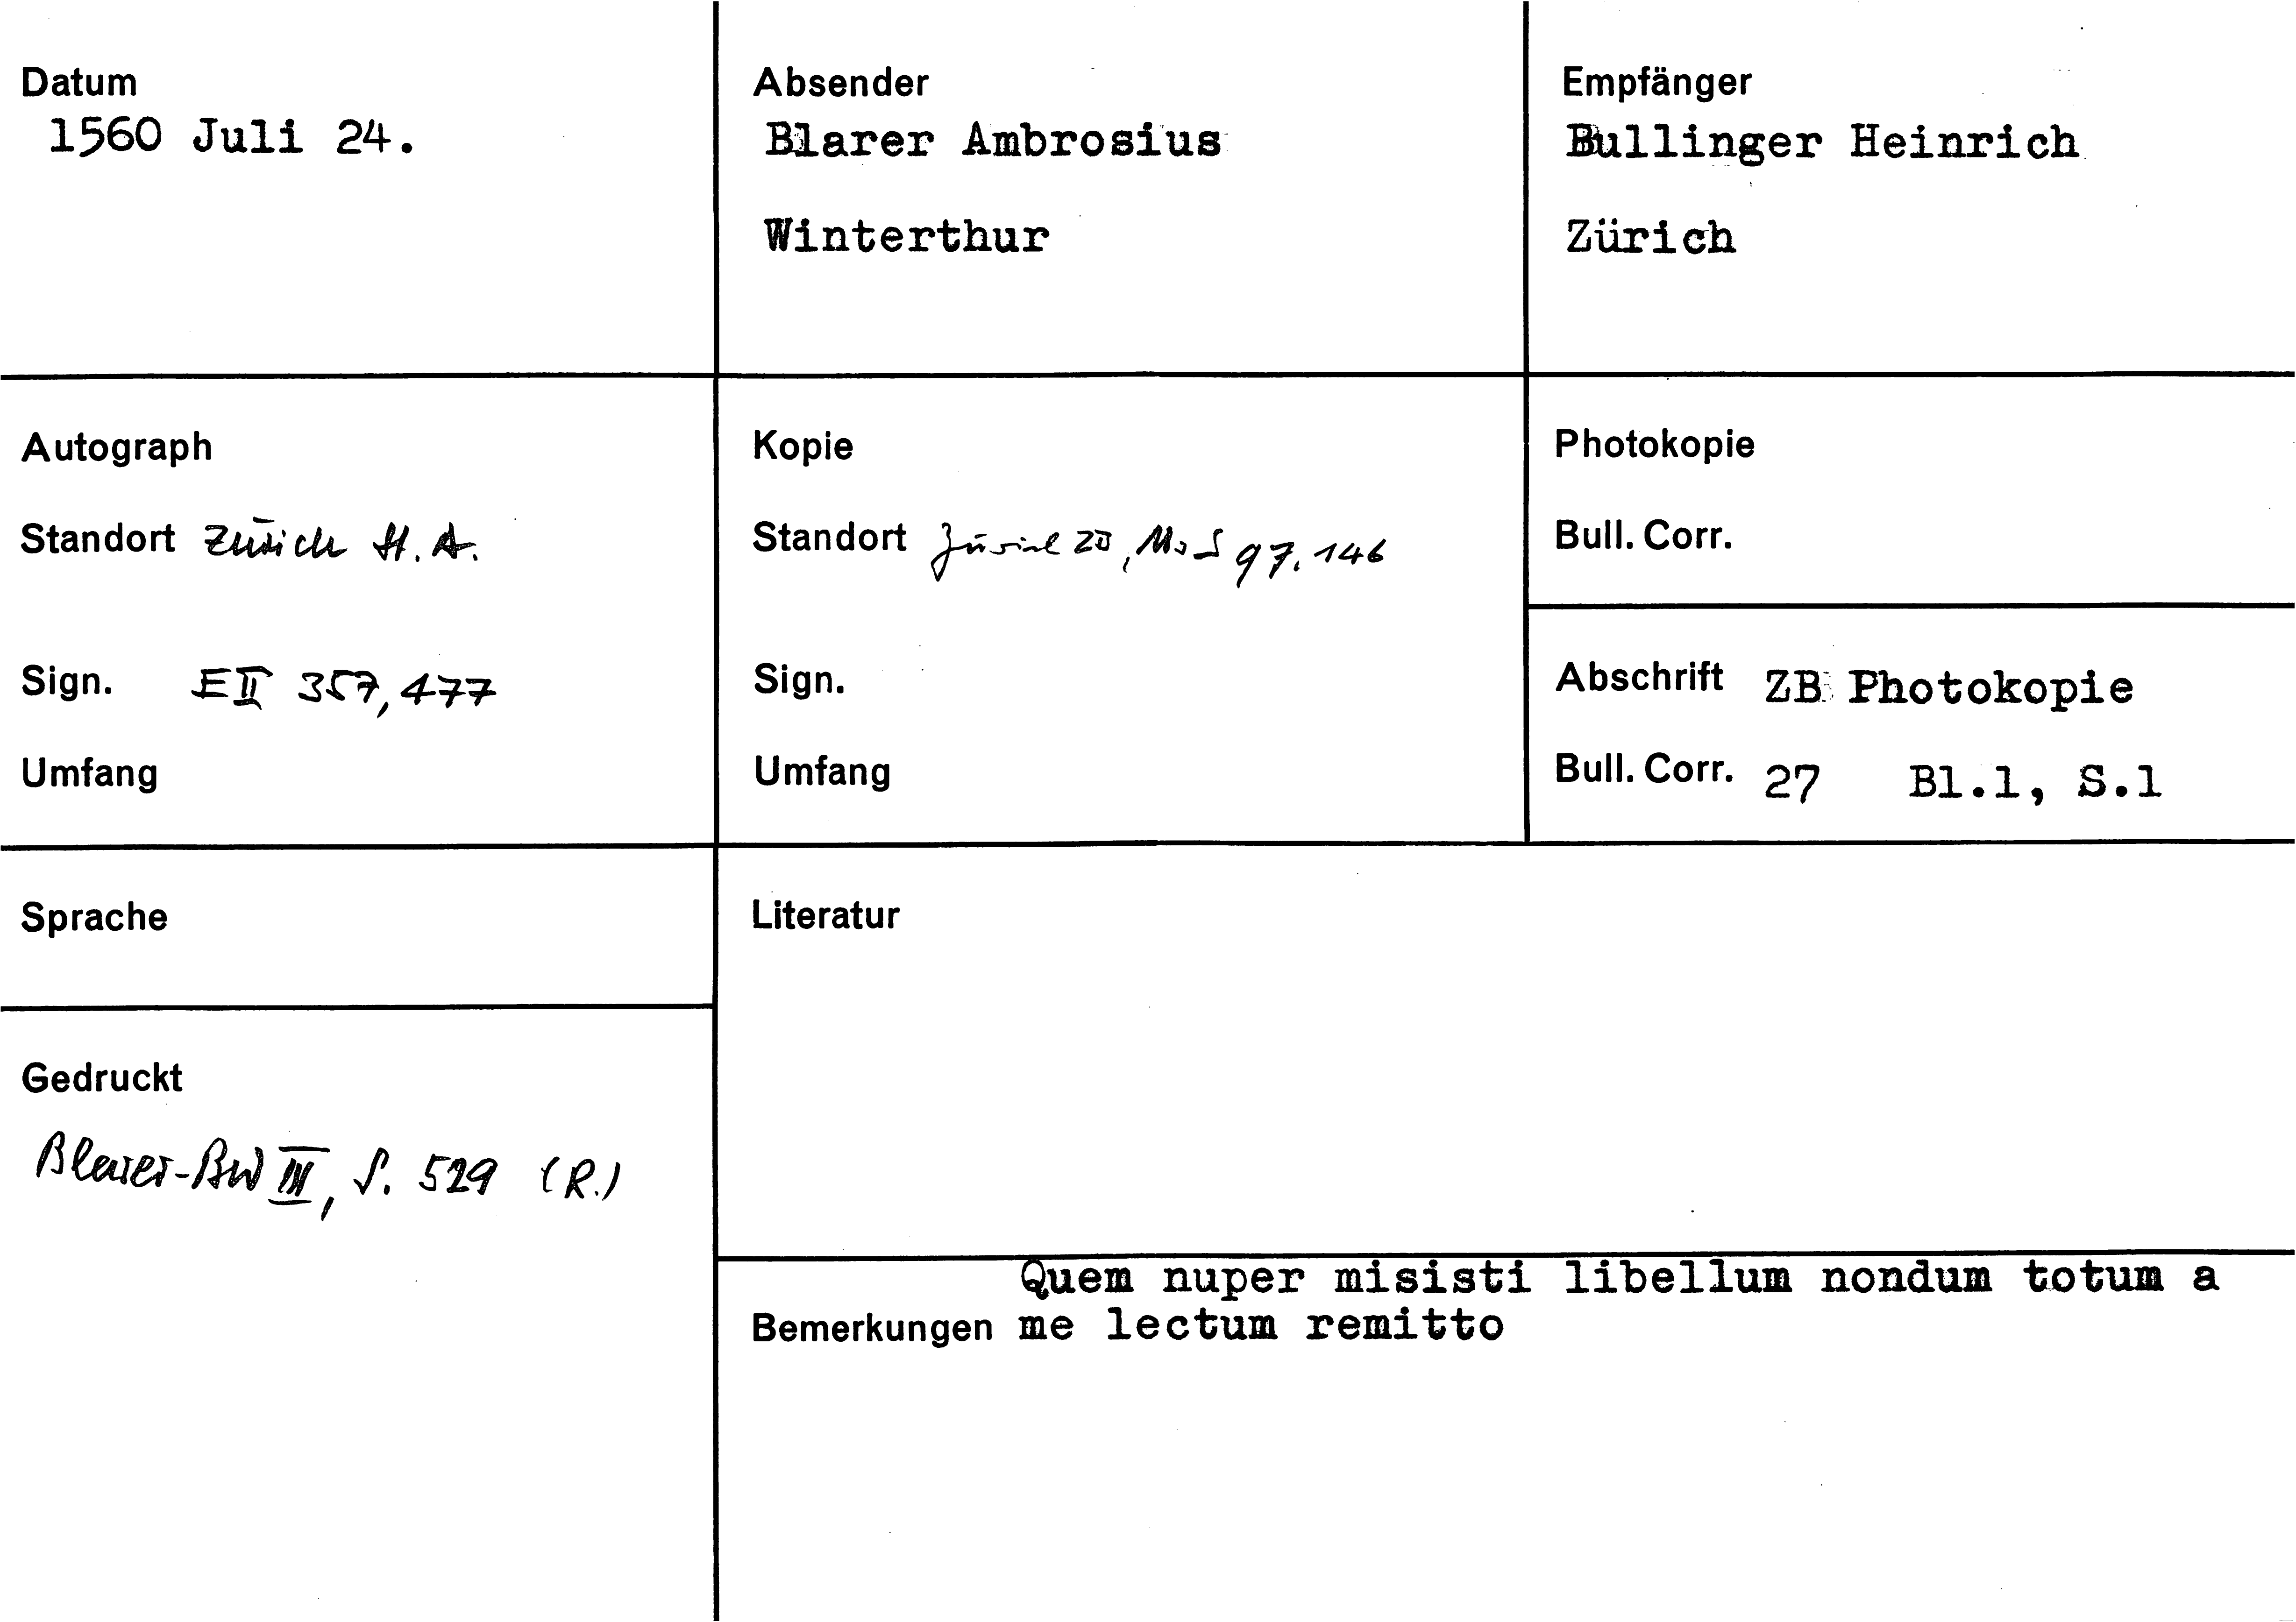 Datum
1560 Juli 24.
Absender
Blarer Ambrosius
Winterthur
Empfänger
Bullinger Heinrich
Zürich
Autograph
Standort Zürich St. A.
Sign. E II 357, 477
Umfang
Kopie
Standort Zürich ZB, Ms S 97, 146
Sign.
Umfang
Photokopie
Bull. Corr.
Abschrift ZB Photokopie
Bull. Corr. 27 Bl.1, S.1
Sprache
Gedruckt
Blarer-BW III, S. 529 (R.)
Literatur
Quem nuper misisti libellum nondum totum a
Bemerkungen me lectum remitto